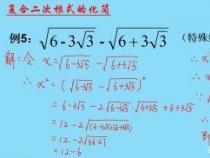 复合二次根式的化简
例5: √(6-3√3) - √(6+3√3) (特殊
解: 令 x = √(6-3√3) - √(6+3√3)
x² = (√(6-3√3) - √(6+3√3))²
= 6-3√3 - 2√(6-3√3)·√(6+3√3) + 6+3√3
= 12 - 2√((6-3√3)(6+3√3))
= 12 - 2√(36-27)
= 12-6